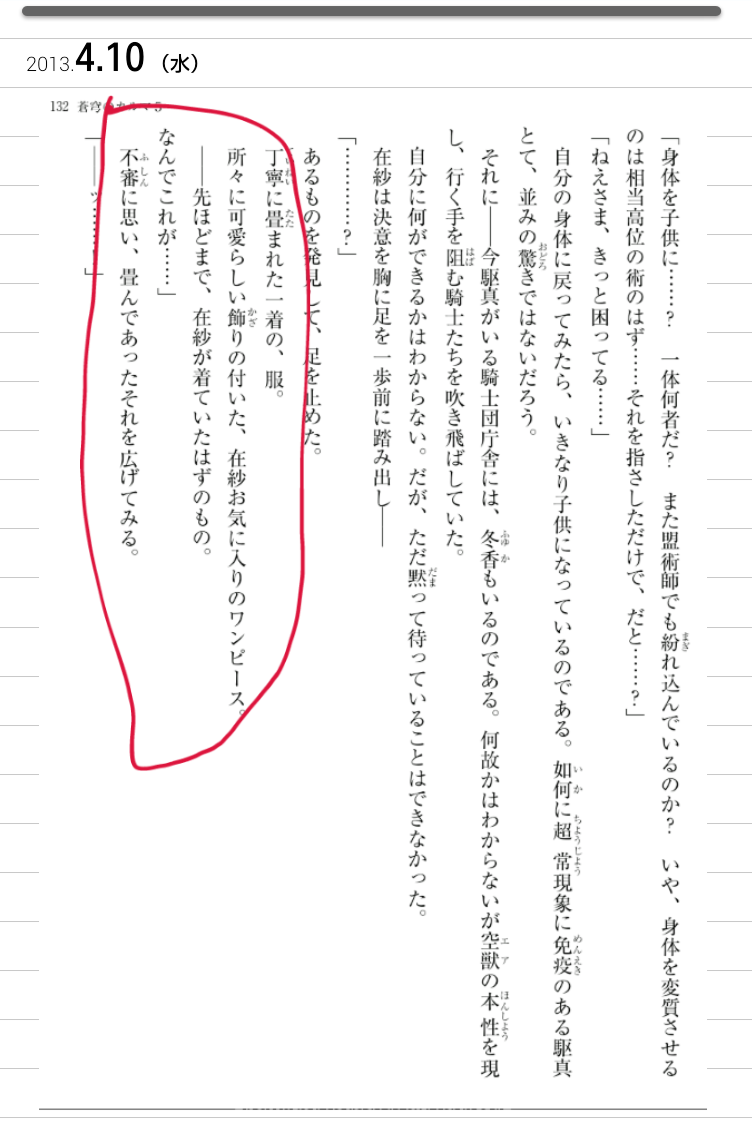 2013.4.10（水）
132 蒼穹のカルマ5
「身体を子供に……？　一体何者だ？　また盟術師でも紛れ込んでいるのか？　いや、身体を変質させる
のは相当高位の術のはず……それを指さしただけで、だと……？」
「ねえさま、きっと困ってる……」
自分の身体に戻ってみたら、いきなり子供になっているのである。如何に超常現象に免疫のある駆真
とて、並みの驚きではないだろう。
それに――今駆真がいる騎士団庁舎には、冬香もいるのである。何故かはわからないが空獣の本性を現
し、行く手を阻む騎士たちを吹き飛ばしていた。
自分に何ができるかはわからない。だが、ただ黙って待っていることはできなかった。
在紗は決意を胸に足を一歩前に踏み出し――
「…………？」
あるものを発見して、足を止めた。
丁寧に畳まれた一着の、服。
所々に可愛らしい飾りの付いた、在紗お気に入りのワンピース。
――先ほどまで、在紗が着ていたはずのもの。
なんでこれが……」
不審に思い、畳んであったそれを広げてみる。
「――ッ………」